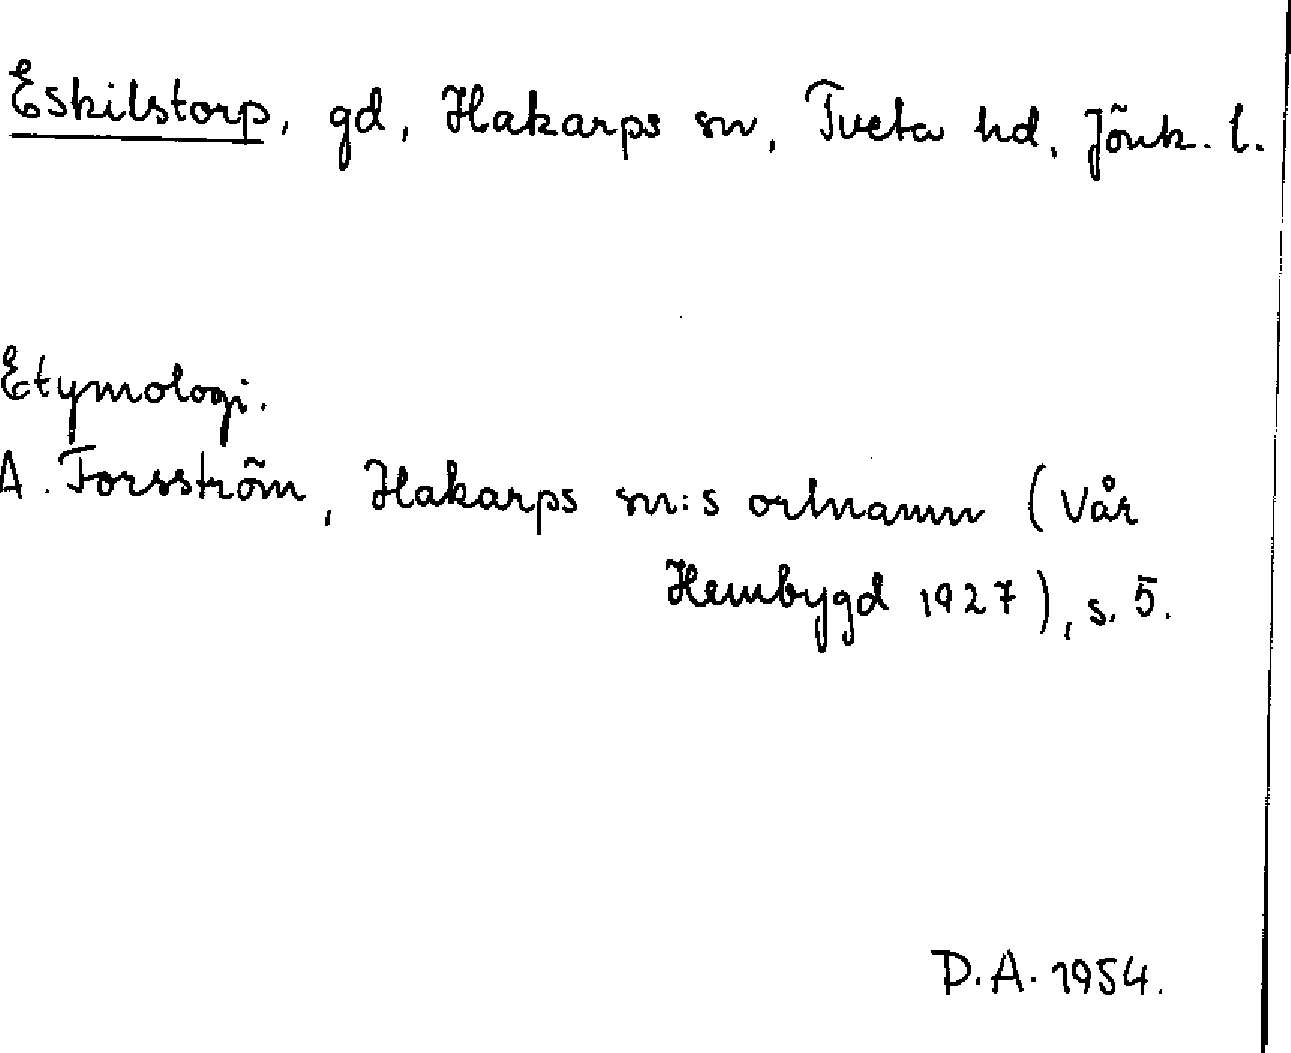 Eskilstorp, gd, Hakarps sn, Tveta hd, Jönk. l.
Etymologi.
A. Forsström, Hakarps sn:s ortnamn (Vår
Hembygd 1927), s. 5.
D.A. 1954.